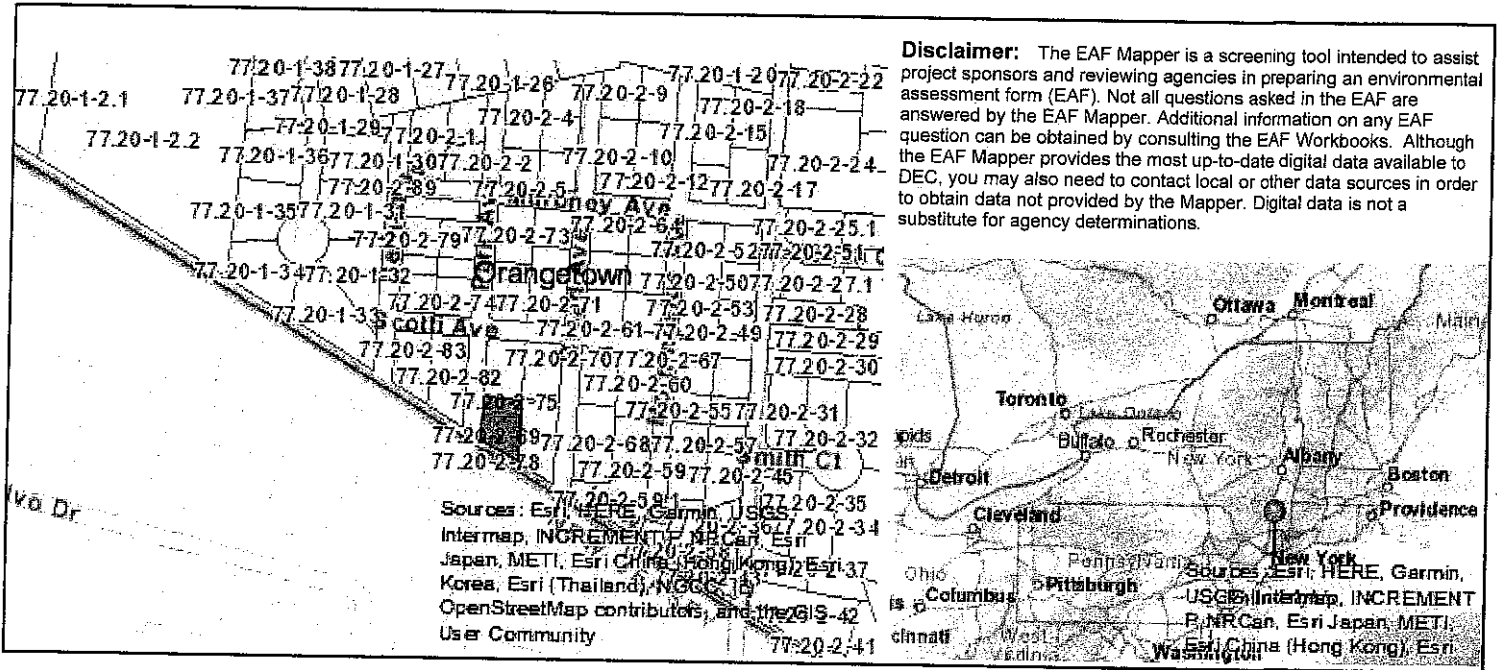 77.20-1-38 77.20-1-27
77.20-1-26
77.20-1-20 77.20-2-22
77.20-1-2.1
77.20-1-37 77.20-1-28
77.20-2-9
77.20-2-18
77.20-1-2.2
77.20-1-29 77.20-2-1
77.20-2-4
77.20-2-15
77.20-1-36 77.20-1-30 77.20-2-2
77.20-2-10
77.20-2-24
77.20-2-89
77.20-2-5
77.20-2-12 77.20-2-17
77.20-1-35 77.20-1-31
Ave
77.20-2-64
77.20-2-25.1
77-20-2-79 77.20-2-73
77.20-2-52 77-20-2-51
77.20-1-34 77.20-1-32
Orangetown
77.20-2-50 77.20-2-27.1
77.20-1-33
77.20-2-74 77.20-2-71
77.20-2-53
77.20-2-28
Scotti Ave
77.20-2-61
77.20-2-49
77.20-2-29
77.20-2-83
77.20-2-70 77.20-2-67
77.20-2-30
77.20-2-82
77.20-2-60
77.20-2-75
77.20-2-55 77.20-2-31
77.20-2-69
77.20-2-68 77.20-2-57
77.20-2-32
77.20-2-78
77.20-2-59 77.20-2-45
Smith Ct
77.20-2-59.1
77.20-2-35
77.20-2-34
lvo Dr
77.20-2-41
Sources: Esri, HERE, Garmin, USGS,
Intermap, INCREMENT P, NRCan, Esri
Japan, METI, Esri China (Hong Kong), Esri
Korea, Esri (Thailand), NGCC, (c)
OpenStreetMap contributors, and the GIS
User Community
Disclaimer: The EAF Mapper is a screening tool intended to assist
project sponsors and reviewing agencies in preparing an environmental
assessment form (EAF). Not all questions asked in the EAF are
answered by the EAF Mapper. Additional information on any EAF
question can be obtained by consulting the EAF Workbooks. Although
the EAF Mapper provides the most up-to-date digital data available to
DEC, you may also need to contact local or other data sources in order
to obtain data not provided by the Mapper. Digital data is not a
substitute for agency determinations.
Ottawa Montreal
Lake Huron
Toronto
Lake Ontario
Buffalo Rochester
New York Albany
Boston
Detroit
Providence
Cleveland
New York
Ohio
Pennsylvania
Pittsburgh
Columbus
cinnati
West
Washington
Sources: Esri, HERE, Garmin,
USGS, Intermap, INCREMENT
P, NRCan, Esri Japan, METI,
Esri China (Hong Kong), Esri